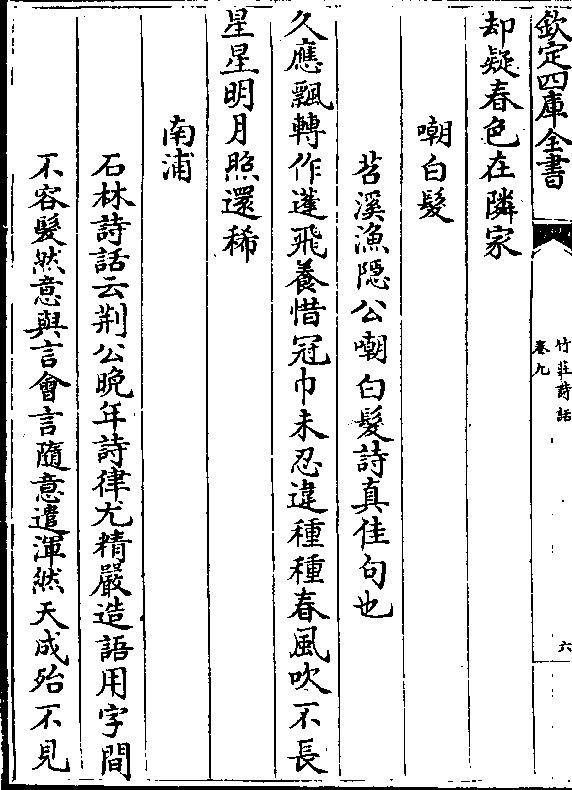 欽定四庫全書
竹莊詩話
卷九
六
却疑春色在隣家
嘲白髮
苕溪漁隠公嘲白髮詩真佳句也
久應飄轉作蓬飛養惜冠巾未忍違種種春風吹不長
星星明月照還稀
南浦
石林詩話云荆公晚年詩律尤精嚴造語用字間
不容髮然意與言會言隨意遣渾然天成殆不見